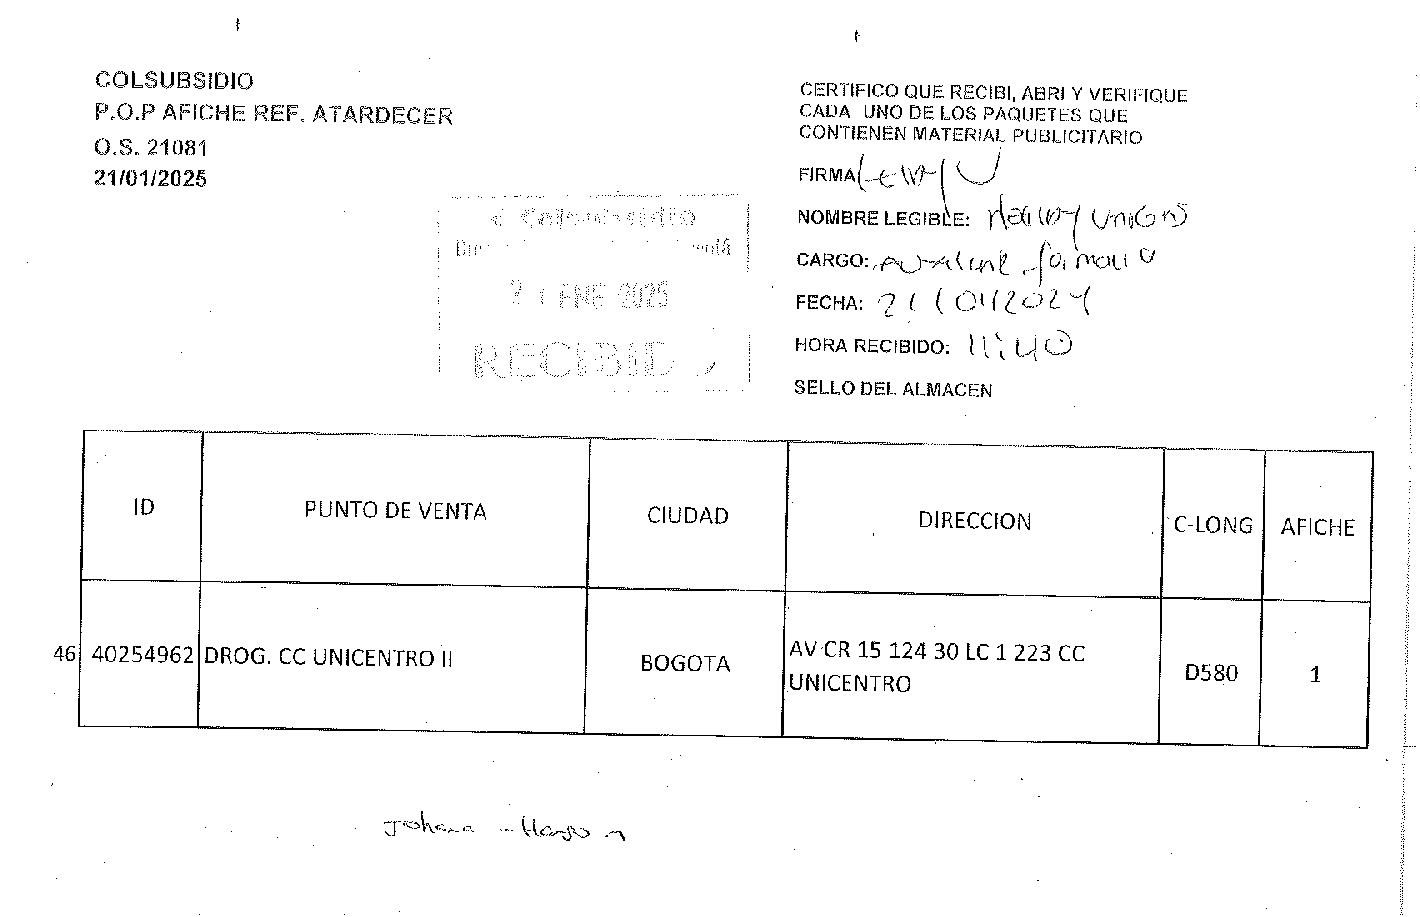 COLSUBSIDIO
P.O.P AFICHE REF. ATARDECER
O.S. 21081
21/01/2025
CERTIFICO QUE RECIBI, ABRI Y VERIFIQUE
CADA UNO DE LOS PAQUETES QUE
CONTIENEN MATERIAL PUBLICITARIO
FIRMA
NOMBRE LEGIBLE:
CARGO:
FECHA: 21/01/2024
HORA RECIBIDO: 11:40
SELLO DEL ALMACEN
Colsubsidio
ENE 2025
RECIBIDO
ID PUNTO DE VENTA CIUDAD DIRECCION C-LONG AFICHE
46 40254962 DROG. CC UNICENTRO II BOGOTA AV CR 15 124 30 LC 1 223 CC UNICENTRO D580 1
Johana